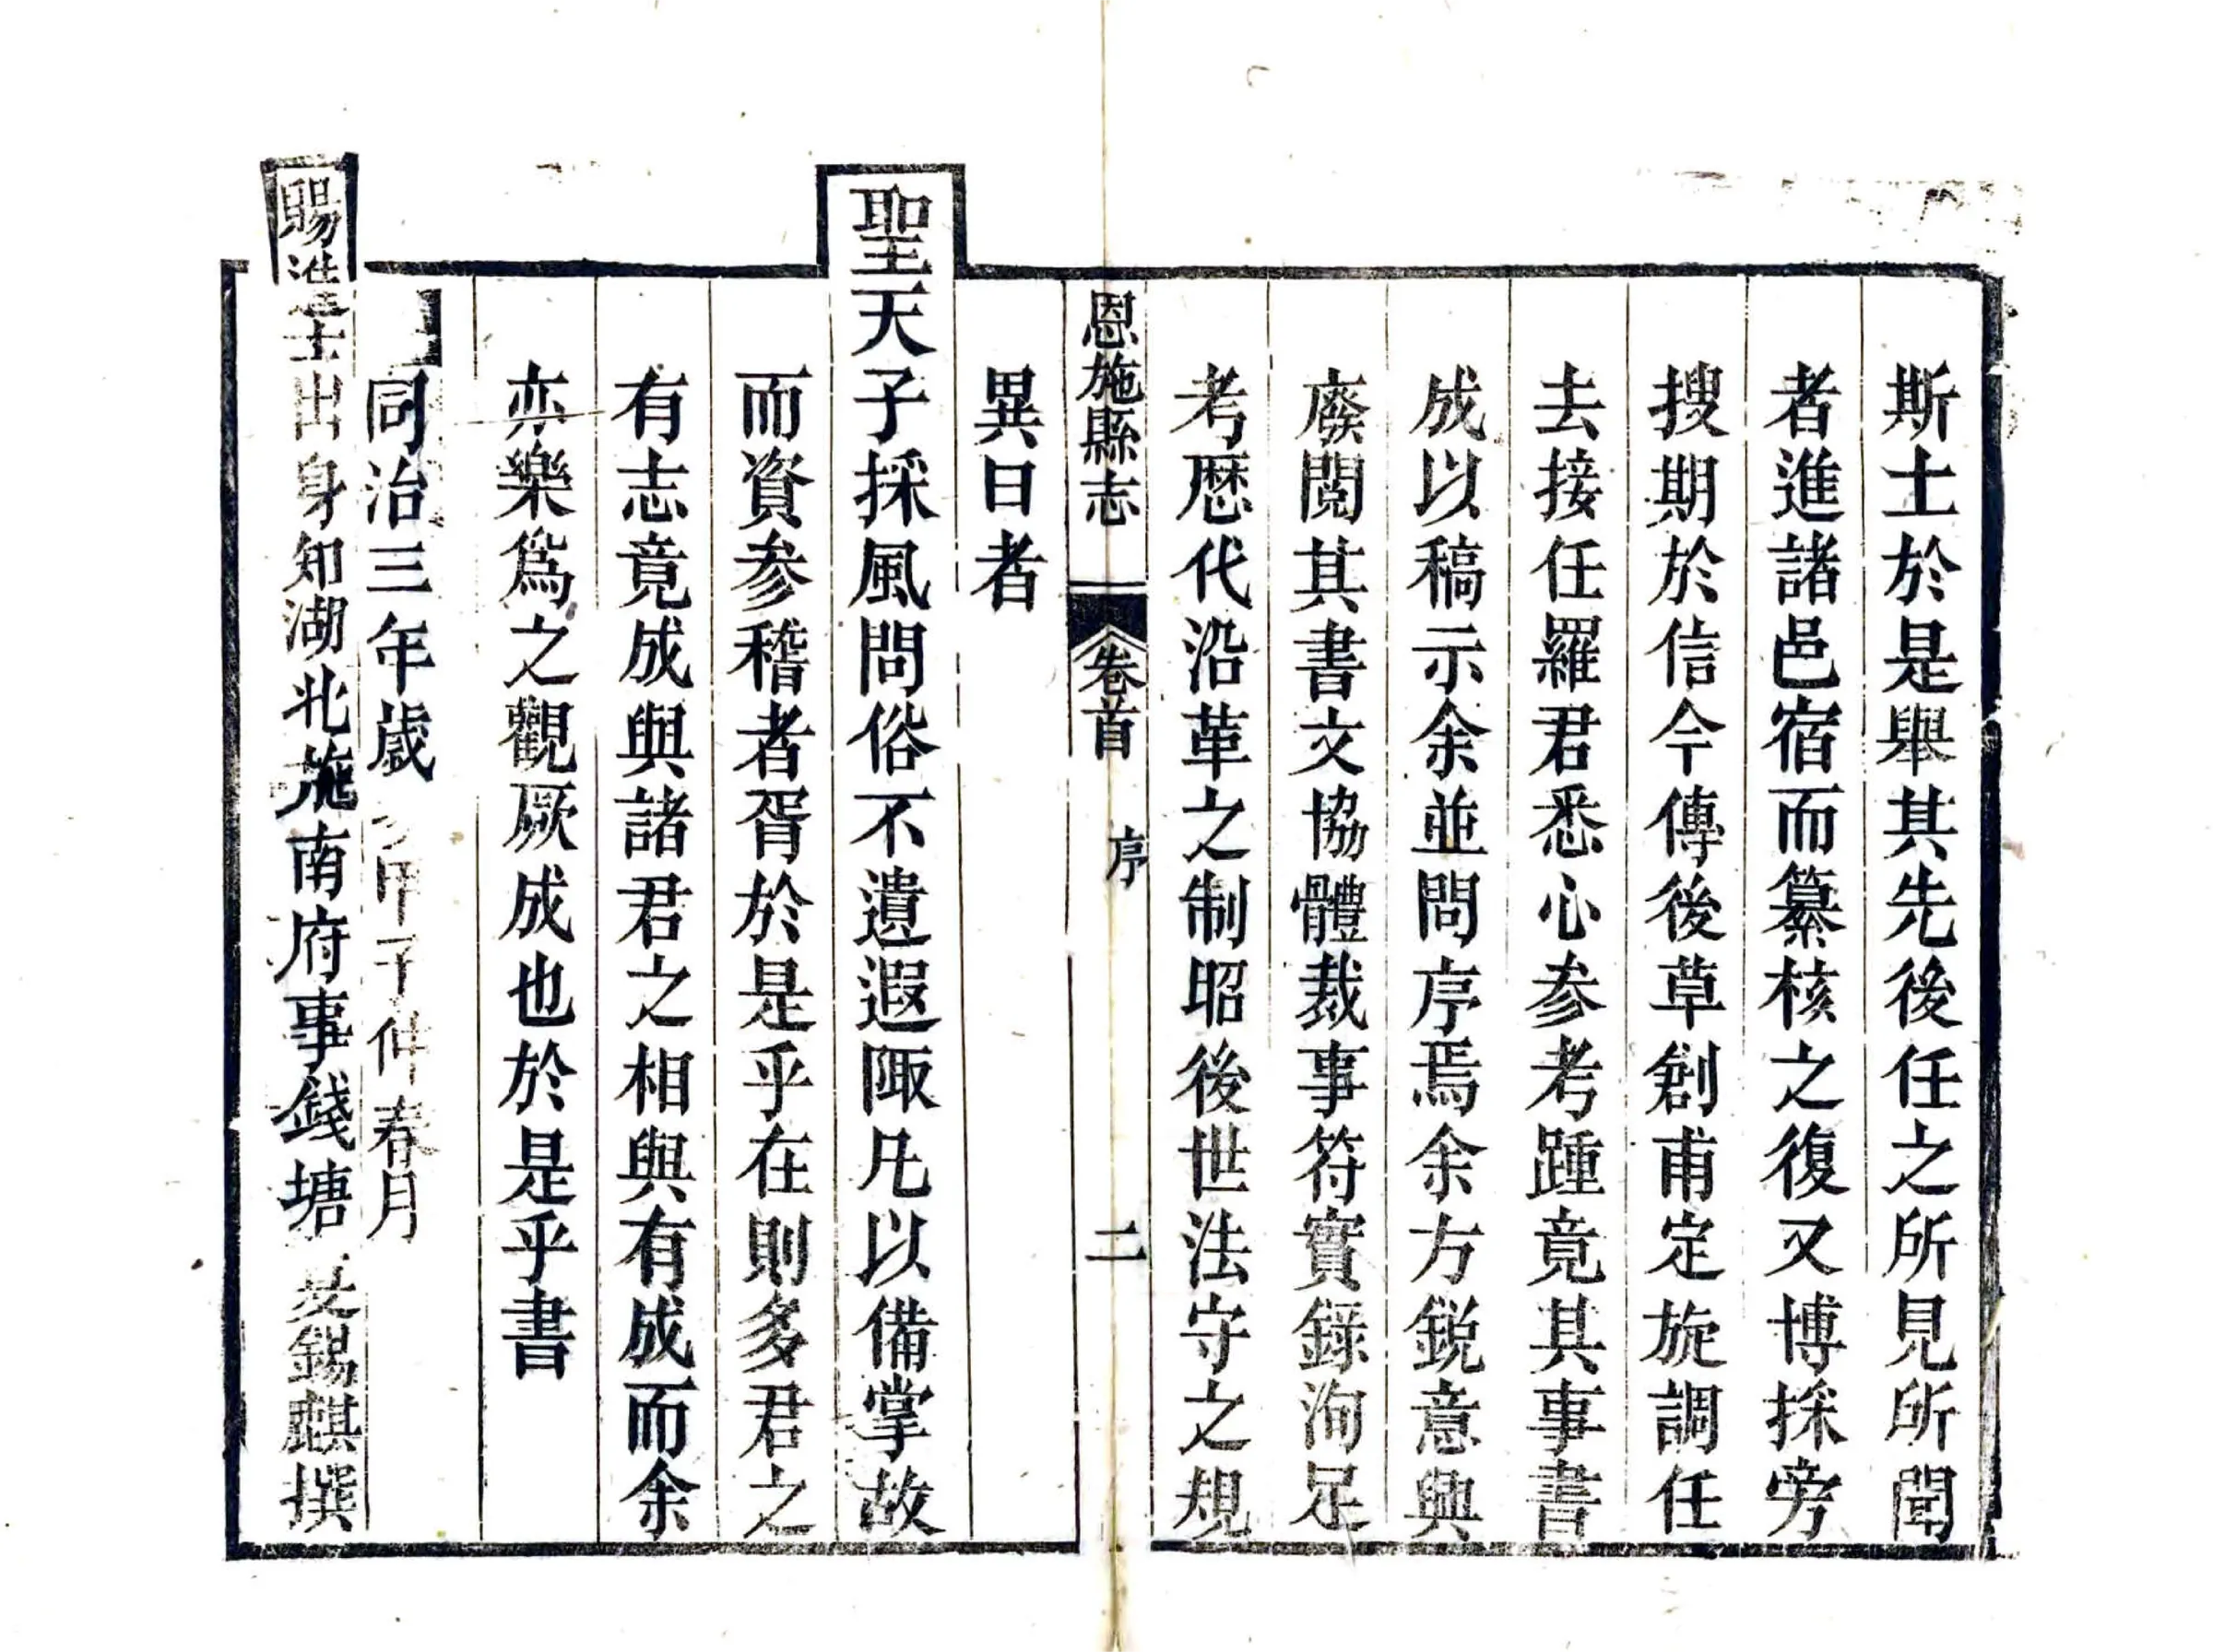 斯土於是舉其先後任之所見所聞
者進諸邑宿而纂核之復又博採旁
搜期於信今傳後草創甫定旋調任
去接任羅君悉心參考踵竟其事書
成以稿示余並問序焉余方銳意興
廢閱其書文協體裁事符實錄洵足
考歷代沿革之制昭後世法守之規
恩施縣志
卷首
序
二
異日者
聖天子採風問俗不遺遐陬凡以備掌故
而資參稽者胥於是乎在則多君之
有志竟成與諸君之相與有成而余
亦樂爲之觀厥成也於是乎書
同治三年歲甲子仲春月
賜進士出身知湖北施南府事錢塘錫麒撰